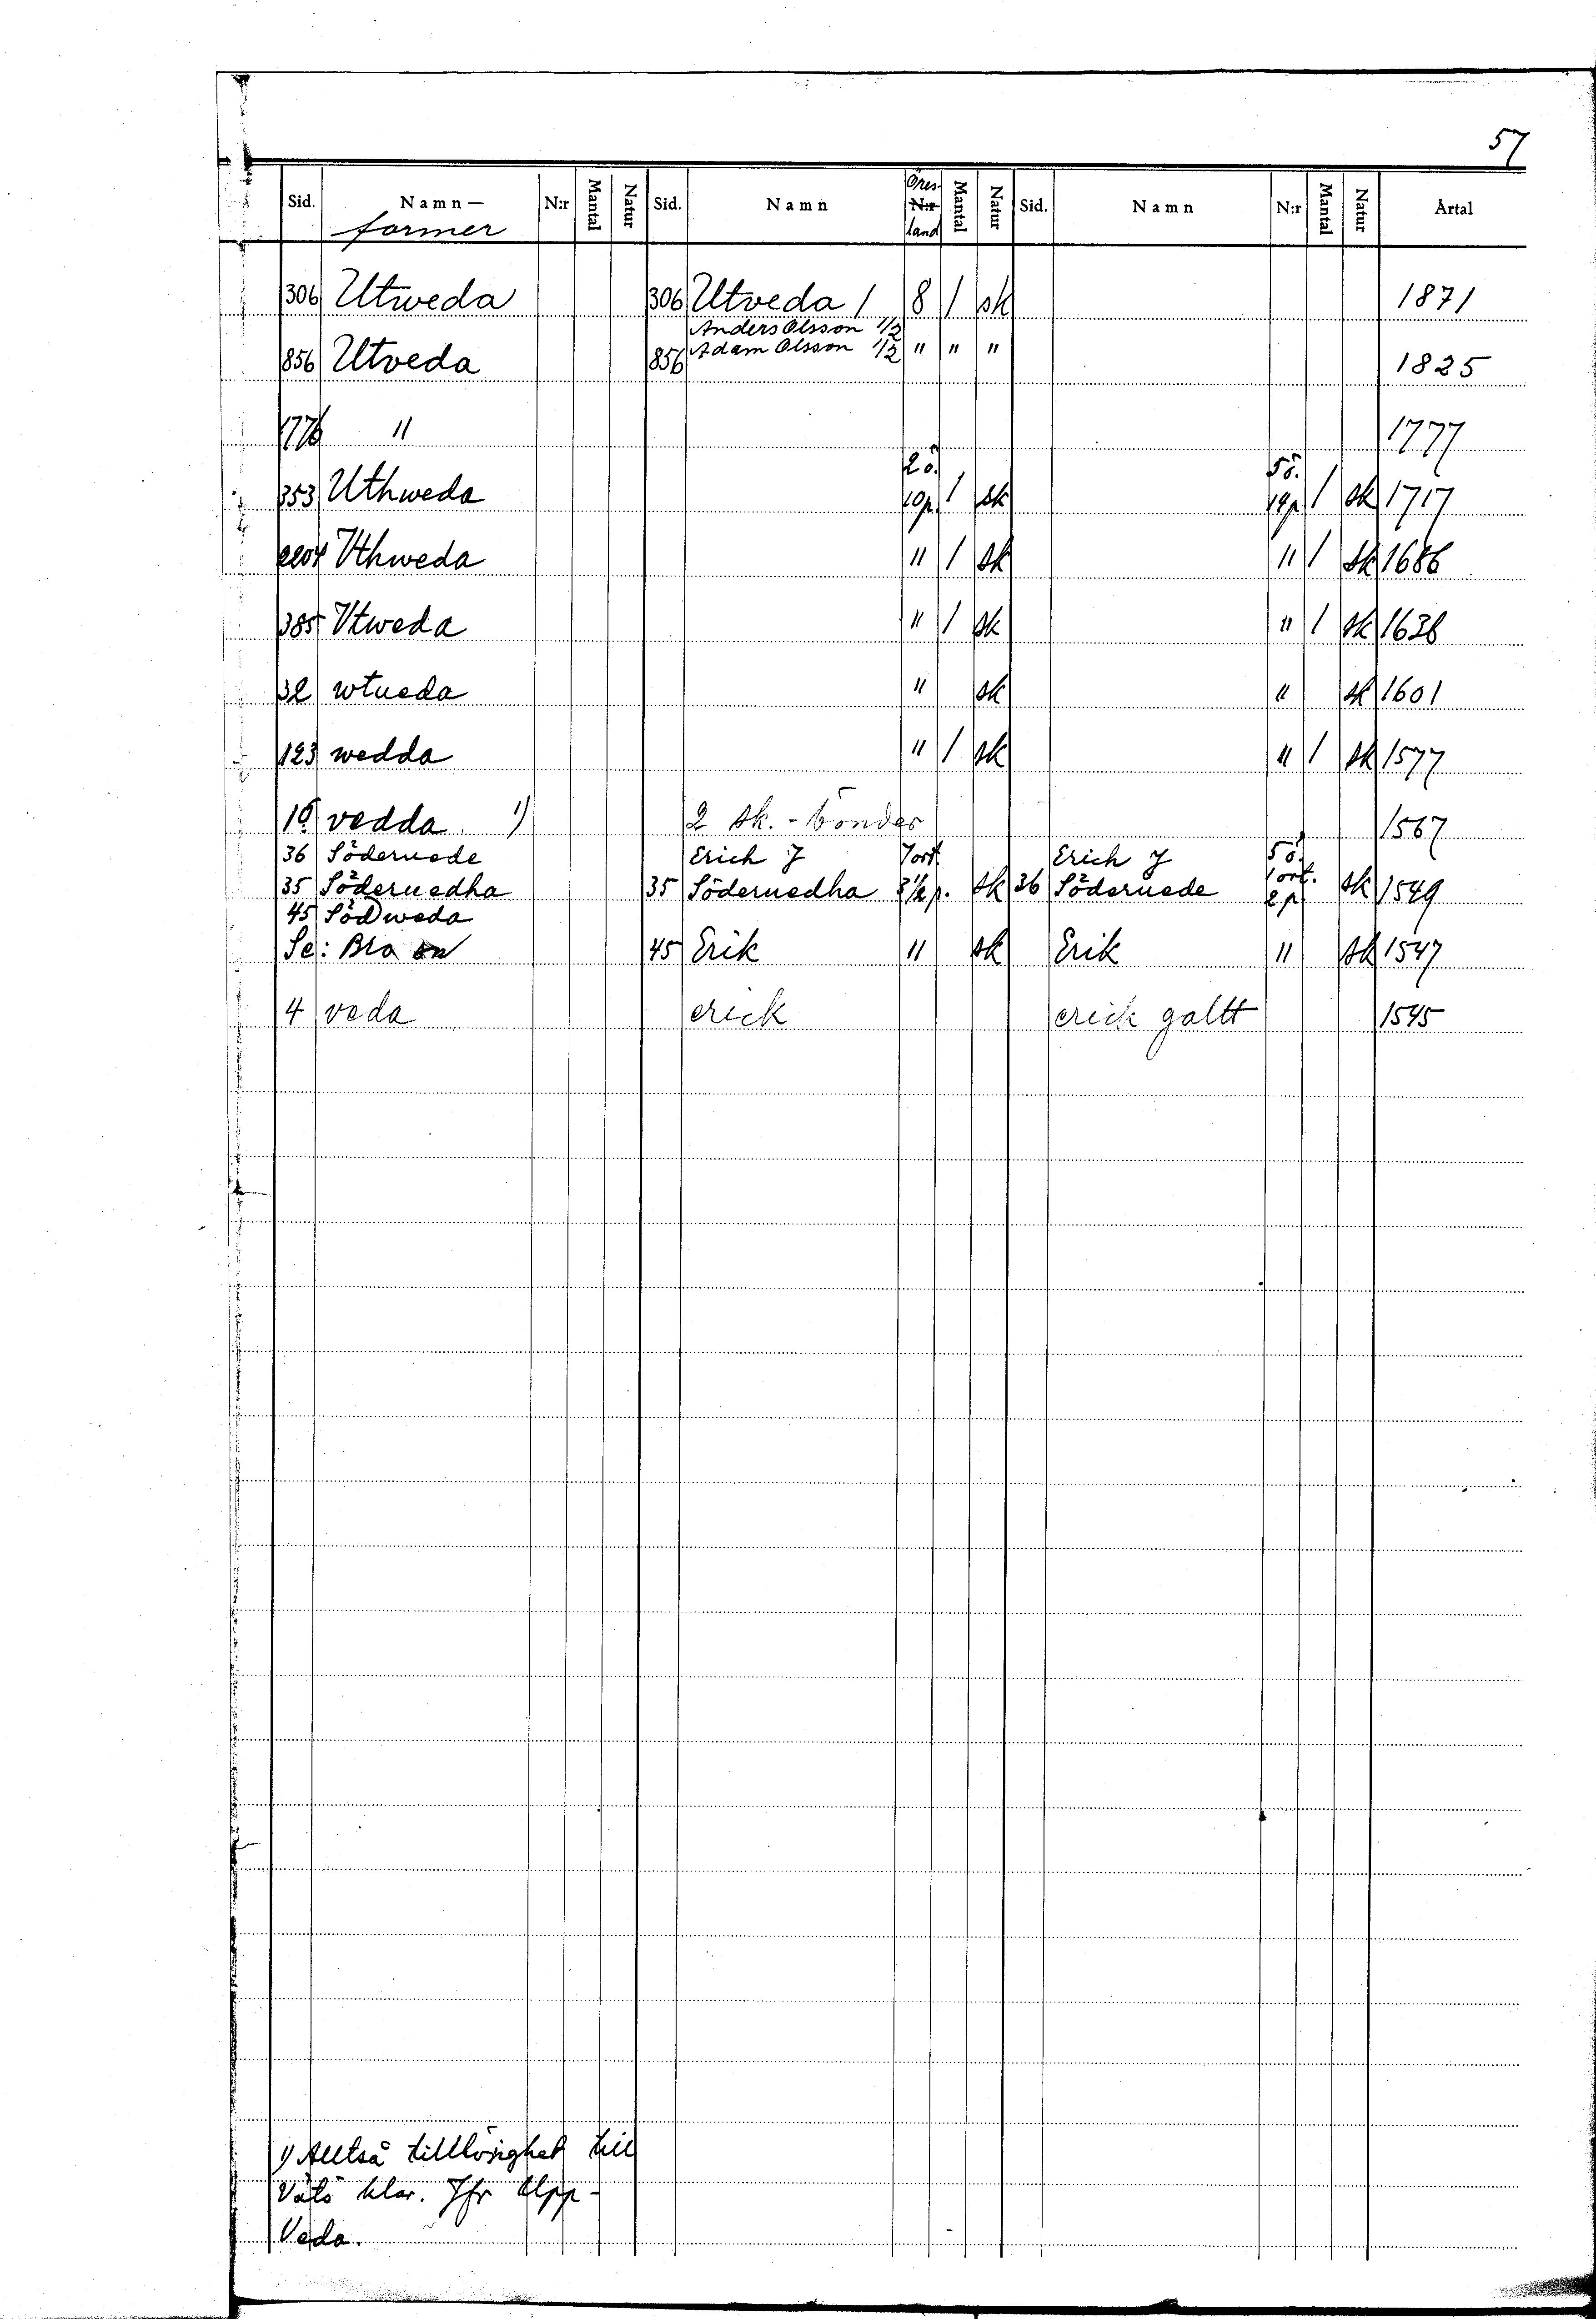 57
Sid. Namn— N:r Mantal Natur Sid. Namn Öres- N:r land Mantal Natur Sid. Namn N:r Mantal Natur Årtal
former
306 Utweda 306 Utveda 1 8 1 sk 1871
Anders Olsson 1/2
856 Utveda 856 Adam Olsson 1/2 " " " 1825
1776 " 1777
2 ö. 5 ö.
353 Uthweda 10p. 1 sk 14p 1 sk 1717
2204 Vthweda " 1 sk " 1 sk 1686
385 Vtweda " 1 sk " 1 sk 1638
32 wtueda " sk " sk 1601
123 wedda " 1 sk " 1 sk 1577
19 vedda 1) 2 sk.-bönder 1567
36 Söderuede Erich J 7 ort. Erich J 5 ö.
35 Söderuedha 35 Söderuedha 3 1/2 p. sk 36 Söderuede 1 ort. 2 p sk 1549
45 Södweda
Se: Bla 45 Erik " sk Erik " sk 1547
4 veda erick erick galtt 1545
1) Alltså tillhörighet till
Vätö klar. Jfr Upp-
Veda.